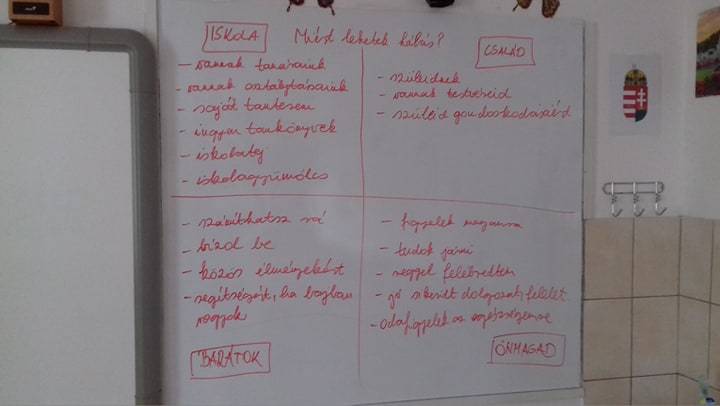 ISKOLA
Miért lehetek hálás?
CSALÁD
- vannak tanáraink
- vannak osztálytársaink
- saját tanterem
- ingyen tankönyvek
- iskolatej
- iskolagyümölcs
- szüleidnek
- vannak testvéreid
- szüleid gondoskodásáért
- számíthatsz rá
- bízol be
- közös élményekért
- segítségért, ha bajban
vagyok
BARÁTOK
- figyelek magamra
- tudok járni
- reggel felébredtem
- jó sikerült dolgozat, felelet
- odafigyelek az egészségemre
ÖNMAGAD